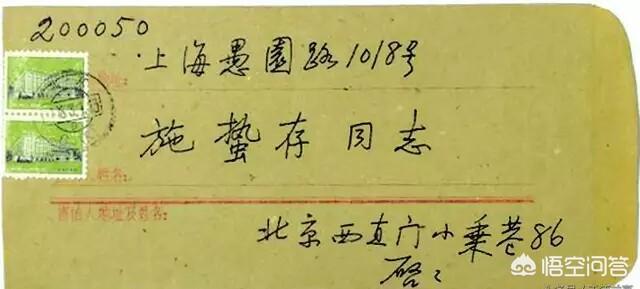 200050
上海愚園路1018号
地址:
施蛰存同志
姓名:
寄信人地址及姓名:
北京西直门小乘巷86
启
悟空问答